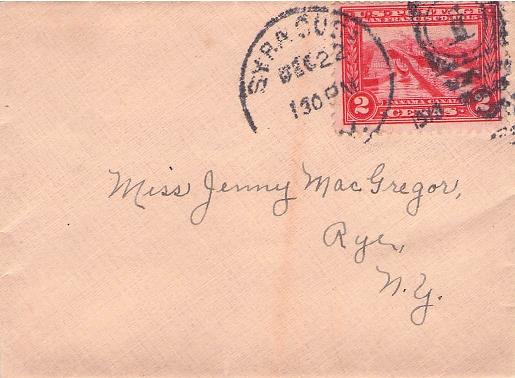 SYRACUSE
DEC 22
130 PM
U.S. POSTAGE
SAN FRANCISCO, 1915
2 PANAMA CANAL 2
CENTS
Miss Jenny MacGregor,
Rye,
N.Y.